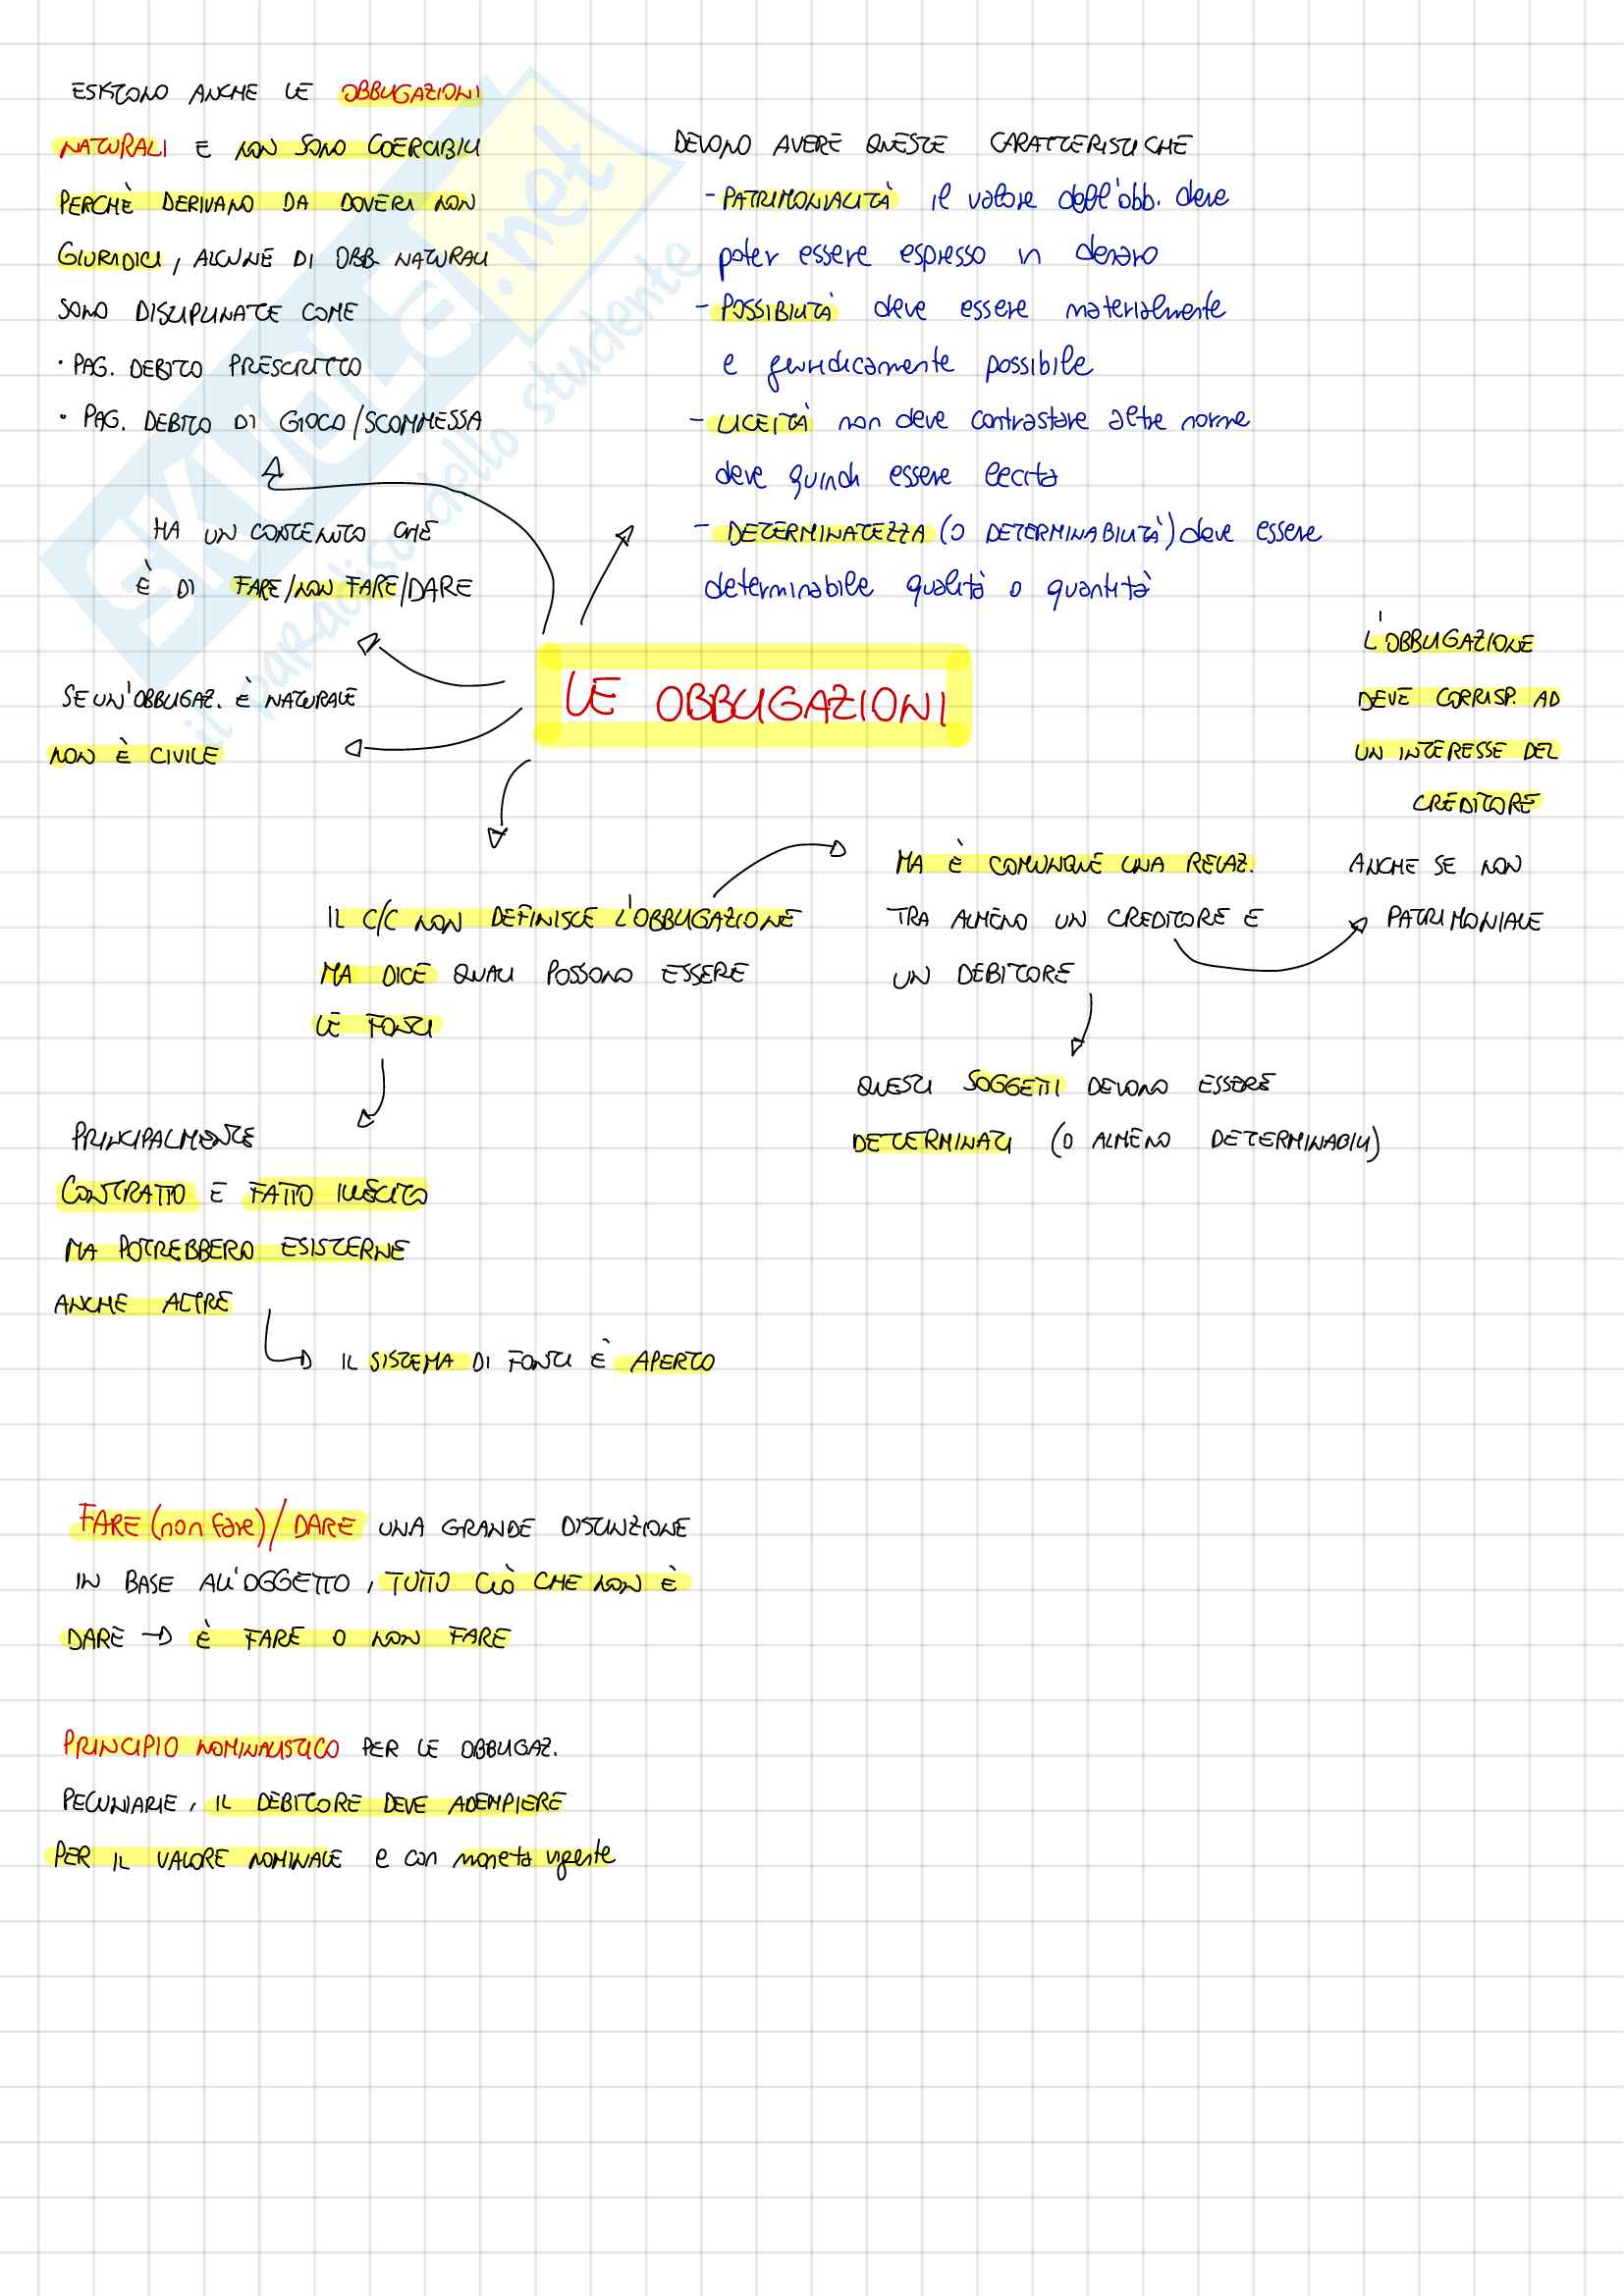 ESISTONO ANCHE LE OBBLIGAZIONI
NATURALI E NON SONO COERCIBILI
PERCHÈ DERIVANO DA DOVERI NON
GIURIDICI, ALCUNE DI OBB. NATURALI
SONO DISCIPLINATE COME
· PAG. DEBITO PRESCRITTO
· PAG. DEBITO DI GIOCO/SCOMMESSA
HA UN CONTENUTO CHE
È DI FARE/NON FARE/DARE
SE UN'OBBLIGAZ. È NATURALE
NON È CIVILE
DEVONO AVERE QUESTE CARATTERISTICHE
- PATRIMONIALITÀ il valore dell'obb. deve
poter essere espresso in denaro
- POSSIBILITÀ deve essere materialmente
e giuridicamente possibile
- LICEITÀ non deve contrastare altre norme
deve quindi essere lecita
- DETERMINATEZZA (O DETERMINABILITÀ) deve essere
determinabile qualità o quantità
LE OBBLIGAZIONI
L'OBBLIGAZIONE
DEVE CORRISP. AD
UN INTERESSE DEL
CREDITORE
ANCHE SE NON
PATRIMONIALE
MA È COMUNQUE UNA RELAZ.
TRA ALMENO UN CREDITORE E
UN DEBITORE
QUESTI SOGGETTI DEVONO ESSERE
DETERMINATI (O ALMENO DETERMINABILI)
IL C/C NON DEFINISCE L'OBBLIGAZIONE
MA DICE QUALI POSSONO ESSERE
LE FONTI
PRINCIPALMENTE
CONTRATTO E FATTO ILLECITO
MA POTREBBERO ESISTERNE
ANCHE ALTRE
IL SISTEMA DI FONTI È APERTO
FARE (non fare) / DARE UNA GRANDE DISTINZIONE
IN BASE ALL'OGGETTO, TUTTO CIÒ CHE NON È
DARE → È FARE O NON FARE
PRINCIPIO NOMINALISTICO PER LE OBBLIGAZ.
PECUNIARIE, IL DEBITORE DEVE ADEMPIERE
PER IL VALORE NOMINALE e con moneta vigente
SKUOLA.net
il paradiso dello studente